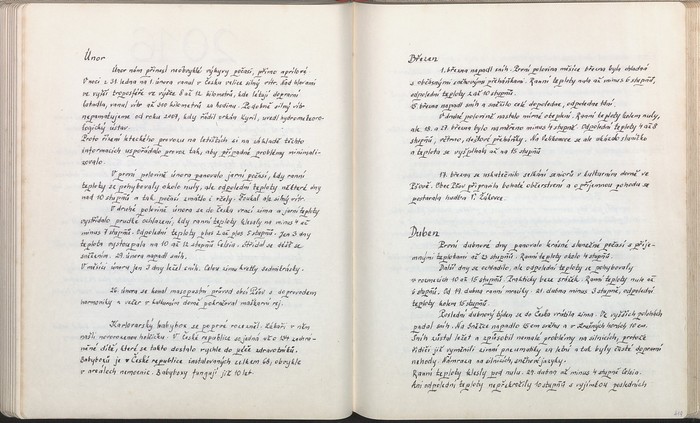 Únor
Únor nám přinesl neobvyklé výkyvy počasí, přímo aprílové.
V noci z 31. ledna na 1. února vanul v Česku velice silný vítr. Nad hlavami
ve vyšší troposféře ve výšce 8 až 12 kilometrů, kde létají dopravní
letadla, vanul vítr až 300 kilometrů za hodinu. Podobně silný vítr
nepamatujeme od roku 2007, kdy řádil orkán Kyril, uvedl hydrometeoro-
logický ústav.
Proto řízení leteckého provozu na letištích si na základě těchto
informacích uspořádalo provoz tak, aby případné problémy minimali-
zovalo.
V první polovině února panovalo jarní počasí, kdy ranní
teploty se pohybovaly okolo nuly, ale odpolední teploty některé dny
nad 10 stupňů a tak počasí zmátlo i růže. Foukal ale silný vítr.
V druhé polovině února se do Česka vrací zima a jarní teploty
vystřídalo prudké ochlazení, kdy ranní teploty klesly na minus 4 až
minus 7 stupňů. Odpolední teploty plus 2 až plus 5 stupňů. Jen 3 dny
teplota vystoupala na 10 až 12 stupňů Celsia. Střídal se déšť se
sněžením. 29. února napadl sníh.
V měsíci únoru jen 3 dny ležel sníh. Celou zimu kvetly sedmikrásky.
20. února se konal masopustní průvod obcí Bívš s doprovodem
harmoniky a večer v kulturním domě pokračoval maškarní rej.
Karlovarský babybox se poprvé rozezněl. Lékaři v něm
našli novorozenou holčičku. V České republice se jedná už o 134 zachrá-
něné dítě, které se takto dostalo rychle do péče zdravotníků.
Babyboxů je v České republice instalovaných celkem 68, obvykle
v areálech nemocnic. Babyboxy fungují již 10 let.
Březen
1. března napadl sníh. První polovina měsíce března byla chladná
s občasnými sněhovými přeháňkami. Ranní teploty nula až minus 6 stupňů,
odpolední teploty 2 až 10 stupňů.
15. března napadl sníh a sněžilo celé dopoledne, odpoledne tání.
V druhé polovině nastalo mírné oteplení. Ranní teploty kolem nuly,
ale 18. a 27. března bylo naměřeno minus 4 stupně. Odpolední teploty 4 až 8
stupňů, větrno, dešťové přeháňky. Na Velikonoce se ale ukázalo sluníčko
a teplota se vyšplhala až na 15 stupňů
17. března se uskutečnilo setkání seniorů v kulturním domě ve
Bívši. Obec jim připravila bohaté občerstvení a o příjemnou pohodu se
postarala hudba
Duben
První dubnové dny panovalo krásné slunečné počasí s příje-
mnými teplotami až 23 stupňů. Ranní teploty okolo 4 stupňů.
Další dny se ochladilo, ale odpolední teploty se pohybovaly
v rozmezích 10 až 15 stupňů. Prakticky beze srážek. Ranní teploty nula až
6 stupňů. Od 19. dubna ranní mrazíky. 21. dubna minus 3 stupně, odpolední
teploty kolem 15 stupňů.
Poslední dubnový týden se do Česka vrátila zima. Ve vyšších polohách
padal sníh. Na Sněžce napadlo 15 cm sněhu a v Krušných horách 10 cm.
Sníh zůstal ležet a způsobil nemalé problémy na silnicích, protože
řidiči již vyměnili zimní pneumatiky za letní a tak byly časté dopravní
nehody. Námraza na silnicích, sněhové jazyky.
Ranní teploty klesly pod nulu. 29. duben až minus 4 stupně Celsia.
Ani odpolední teploty nepřekročily 10 stupňů s výjimkou posledních